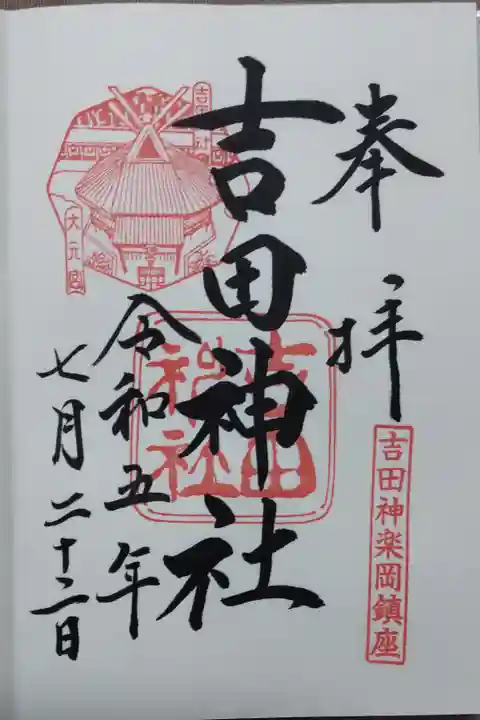 奉拝
吉田神楽岡鎮座
吉田神社
吉田神社
令和五年
七月二十二日
吉田社
大元宮